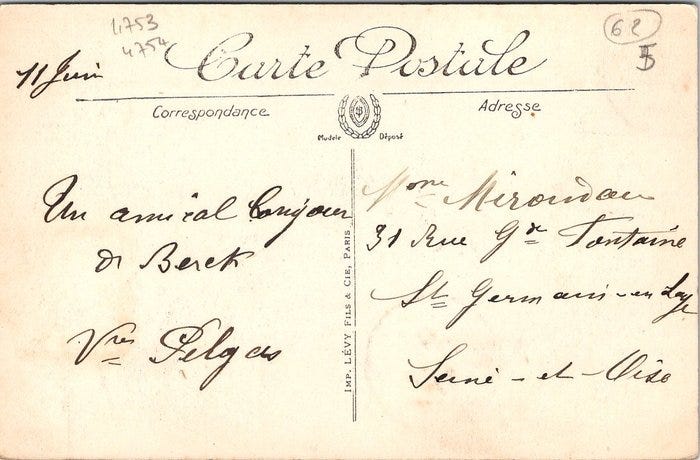 4753
4754
62
11 Juin
Carte Postale
Correspondance
Adresse
Modèle Déposé
Un amical bonjour
de Berck
IMP. LÉVY FILS & CIE, PARIS
Mme
31 Rue Gde Fontaine
St Germain-en Laye
Seine-et-Oise